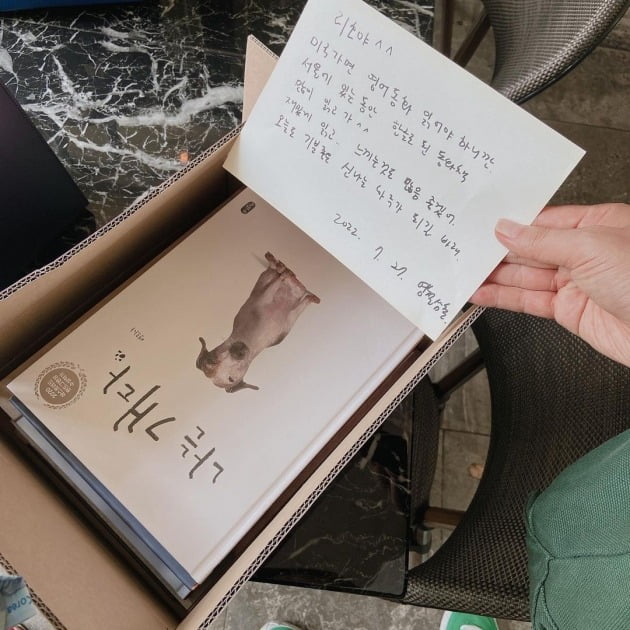 리호야 ^^
미국가면 영어동화 읽어야 하니깐
서울에 있는 동안 한글로 된 동화책
많이 읽고 가^^
재밌게 읽고 느끼는것도 많음 좋겠어.
오늘도 기분좋은 신나는 하루가 되길 바래.
2022. 7. 27.
나는 개다
백희나
2020
Korea